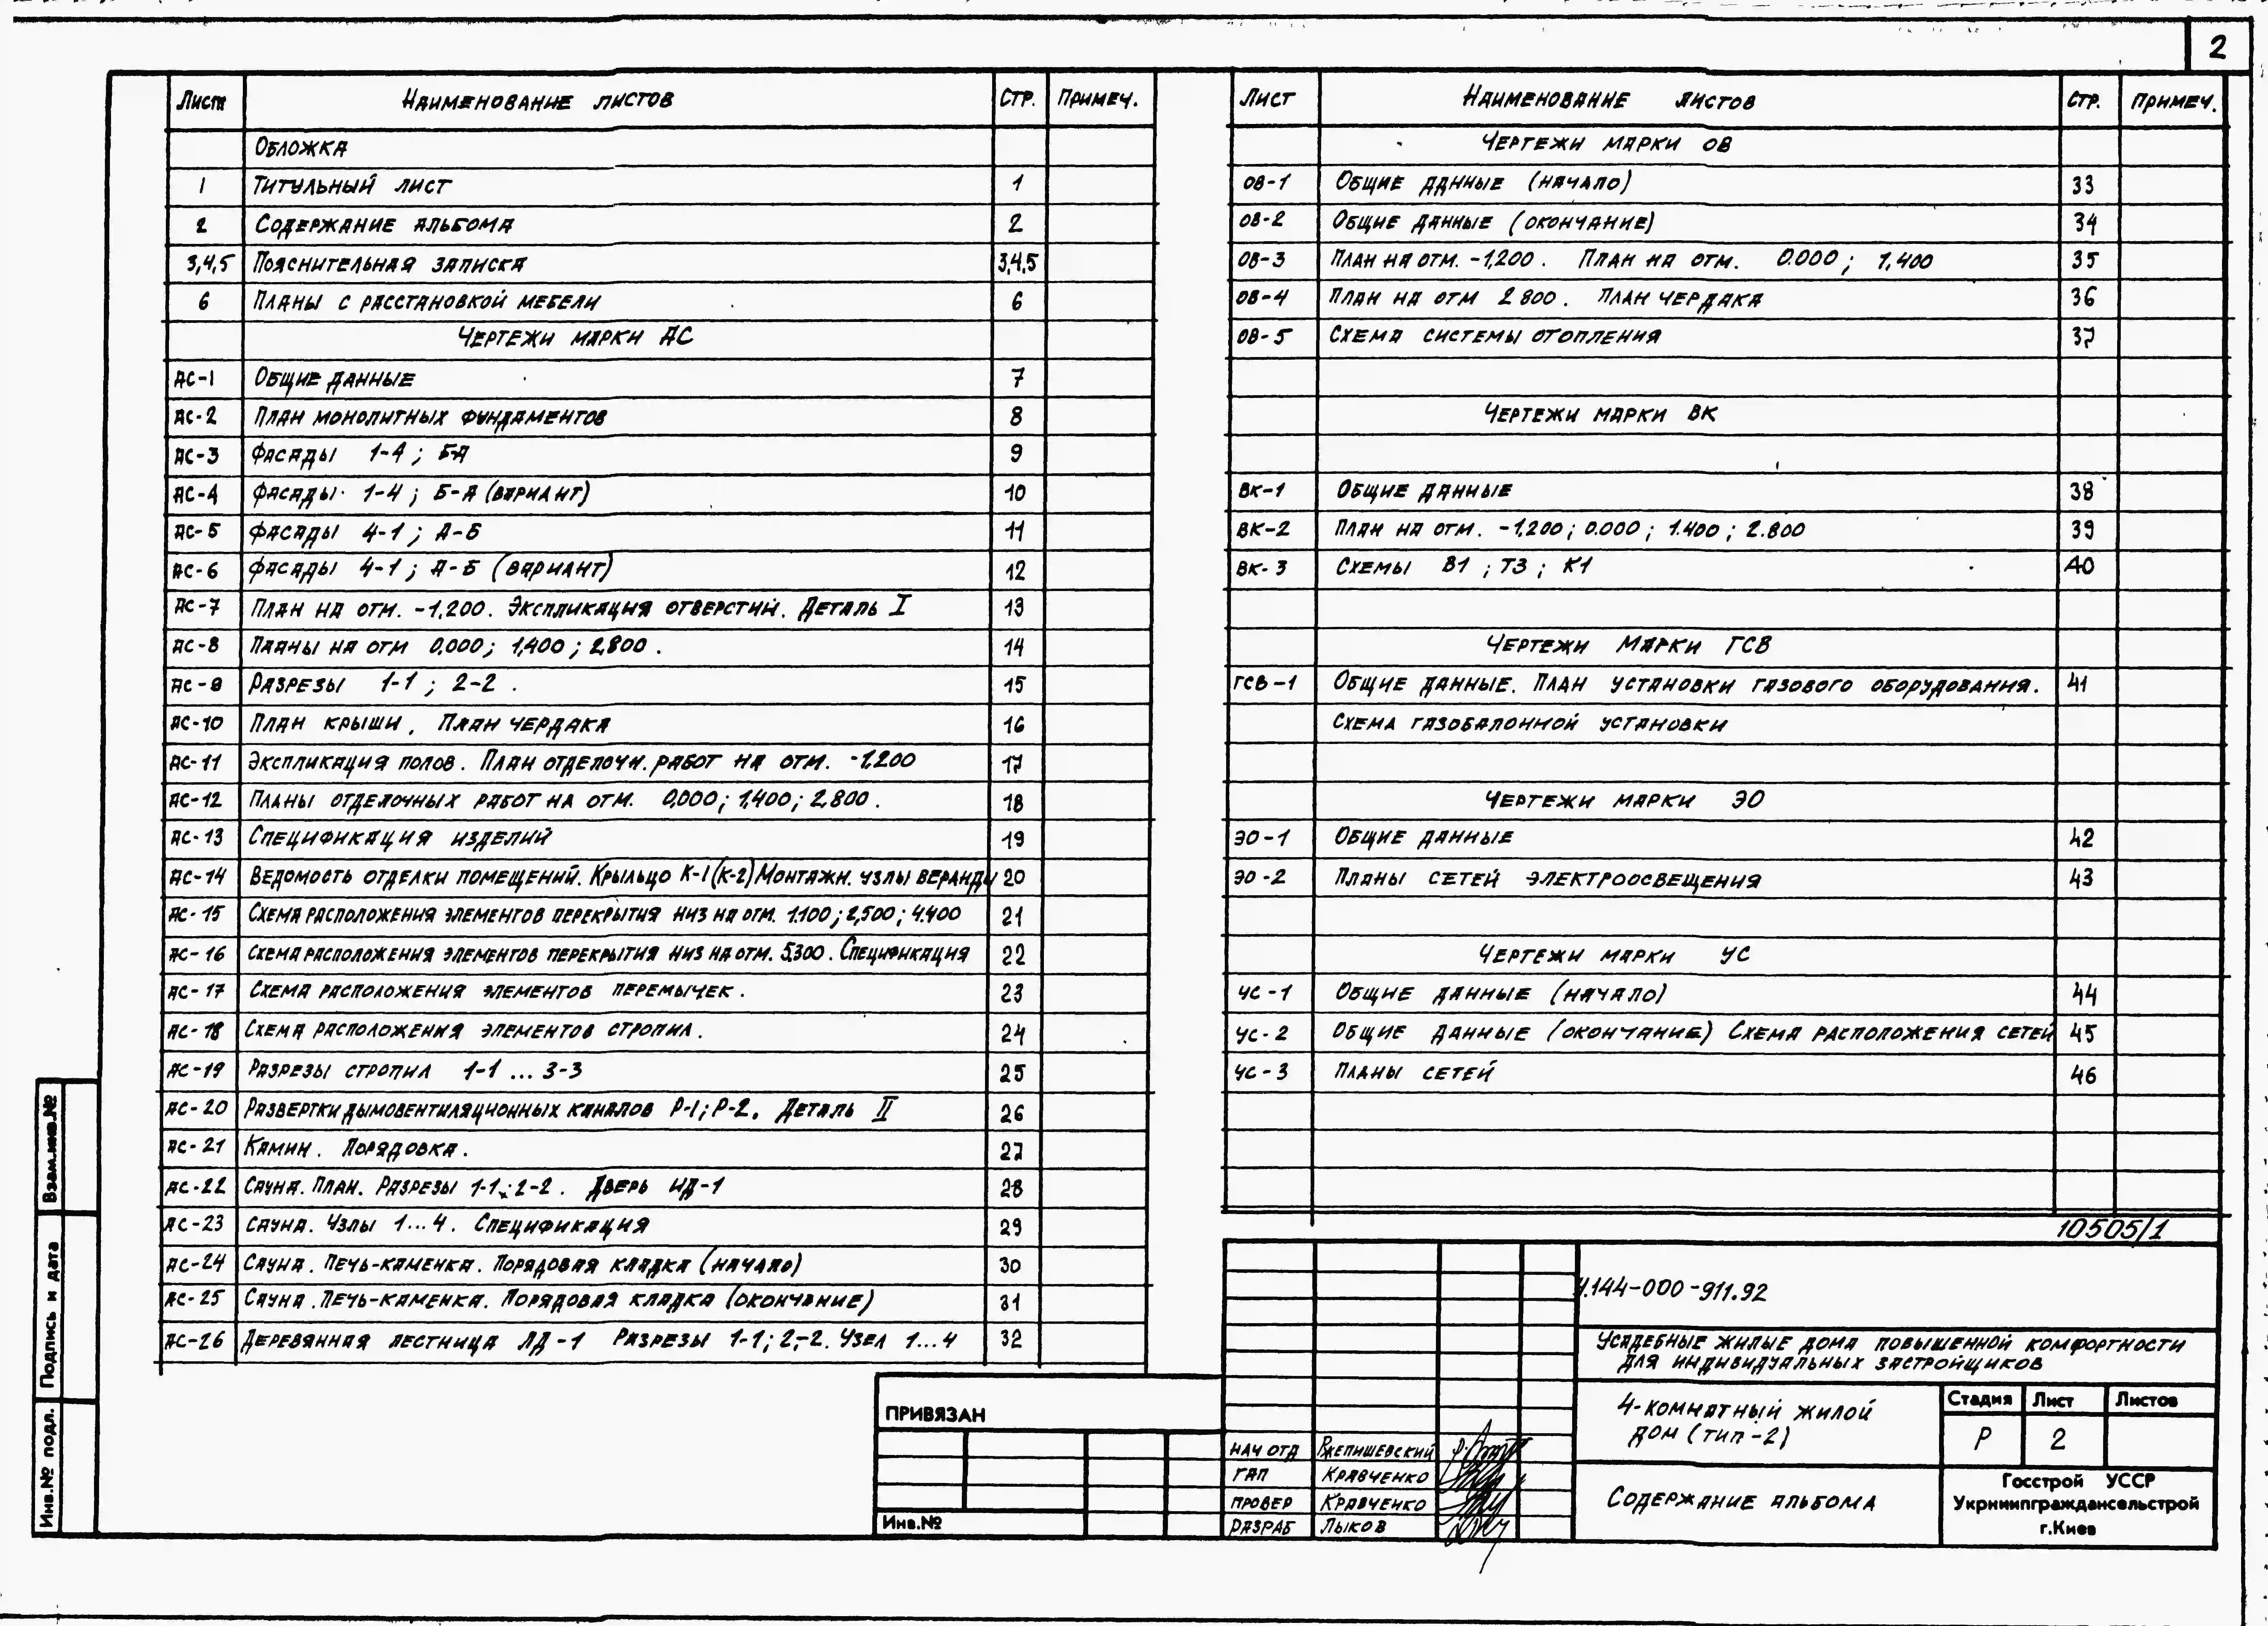 2
Лист Наименование листов Стр. Примеч.
Обложка
1 Титульный лист 1
2 Содержание альбома 2
3,4,5 Пояснительная записка 3,4,5
6 Планы с расстановкой мебели 6
Чертежи марки АС
АС-1 Общие данные 7
АС-2 План монолитных фундаментов 8
АС-3 Фасады 1-4 ; Б-А 9
АС-4 Фасады 1-4 ; Б-А (вариант) 10
АС-5 Фасады 4-1 ; А-Б 11
АС-6 Фасады 4-1 ; А-Б (вариант) 12
АС-7 План на отм. -1,200. Экспликация отверстий. Деталь I 13
АС-8 Планы на отм 0,000; 1,400 ; 2,800 . 14
АС-9 Разрезы 1-1 ; 2-2 . 15
АС-10 План крыши , План чердака 16
АС-11 Экспликация полов. План отделочн. работ на отм. -1.200 17
АС-12 Планы отделочных работ на отм. 0,000; 1,400; 2,800 . 18
АС-13 Спецификация изделий 19
АС-14 Ведомость отделки помещений. Крыльцо К-1(к-2) Монтажн. узлы веранды 20
АС-15 Схема расположения элементов перекрытия низ на отм. 1.100 ; 2,500 ; 4.400 21
АС-16 Схема расположения элементов перекрытия низ на отм. 5.300 . Спецификация 22
АС-17 Схема расположения элементов перемычек . 23
АС-18 Схема расположения элементов стропил . 24
АС-19 Разрезы стропил 1-1 ... 3-3 25
АС-20 Развертки дымовентиляционных каналов Р-1; Р-2. Деталь II 26
АС-21 Камин . Порядовка . 27
АС-22 Сауна. План. Разрезы 1-1; 2-2 . Дверь ИД-1 28
АС-23 Сауна. Узлы 1...4. Спецификация 29
АС-24 Сауна. Печь-каменка. Порядовая кладка (начало) 30
АС-25 Сауна. Печь-каменка. Порядовая кладка (окончание) 31
АС-26 Деревянная лестница ЛД-1 Разрезы 1-1; 2-2. Узел 1...4 32
Лист Наименование листов Стр. Примеч.
Чертежи марки ОВ
ОВ-1 Общие данные (начало) 33
ОВ-2 Общие данные (окончание) 34
ОВ-3 План на отм. -1,200 . План на отм. 0.000 ; 1,400 35
ОВ-4 План на отм 2 800 . План чердака 36
ОВ-5 Схема системы отопления 37
Чертежи марки ВК
ВК-1 Общие данные 38
ВК-2 План на отм. -1,200 ; 0.000 ; 1.400 ; 2.800 39
ВК-3 Схемы В1 ; Т3 ; К1 40
Чертежи марки ГСВ
ГСВ-1 Общие данные. План установки газового оборудования. 41
Схема газобалонной установки
Чертежи марки ЭО
ЭО-1 Общие данные 42
ЭО-2 Планы сетей электроосвещения 43
Чертежи марки УС
УС-1 Общие данные (начало) 44
УС-2 Общие данные (окончание) Схема расположения сетей 45
УС-3 Планы сетей 46
10505/1
У.144-000-911.92
Усадебные жилые дома повышенной комфортности
для индивидуальных застройщиков
4-комнатный жилой
дом (тип-2)
Стадия Лист Листов
Р 2
Содержание альбома
Госстрой УССР
Укрниипграждансельстрой
г.Киев
НАЧ ОТД Ржепишевский
ГАП Кравченко
ПРОВЕР Кравченко
РАЗРАБ Лыков
ПРИВЯЗАН
Инв.№
Взам.инв.№
Подпись и дата
Инв.№ подл.